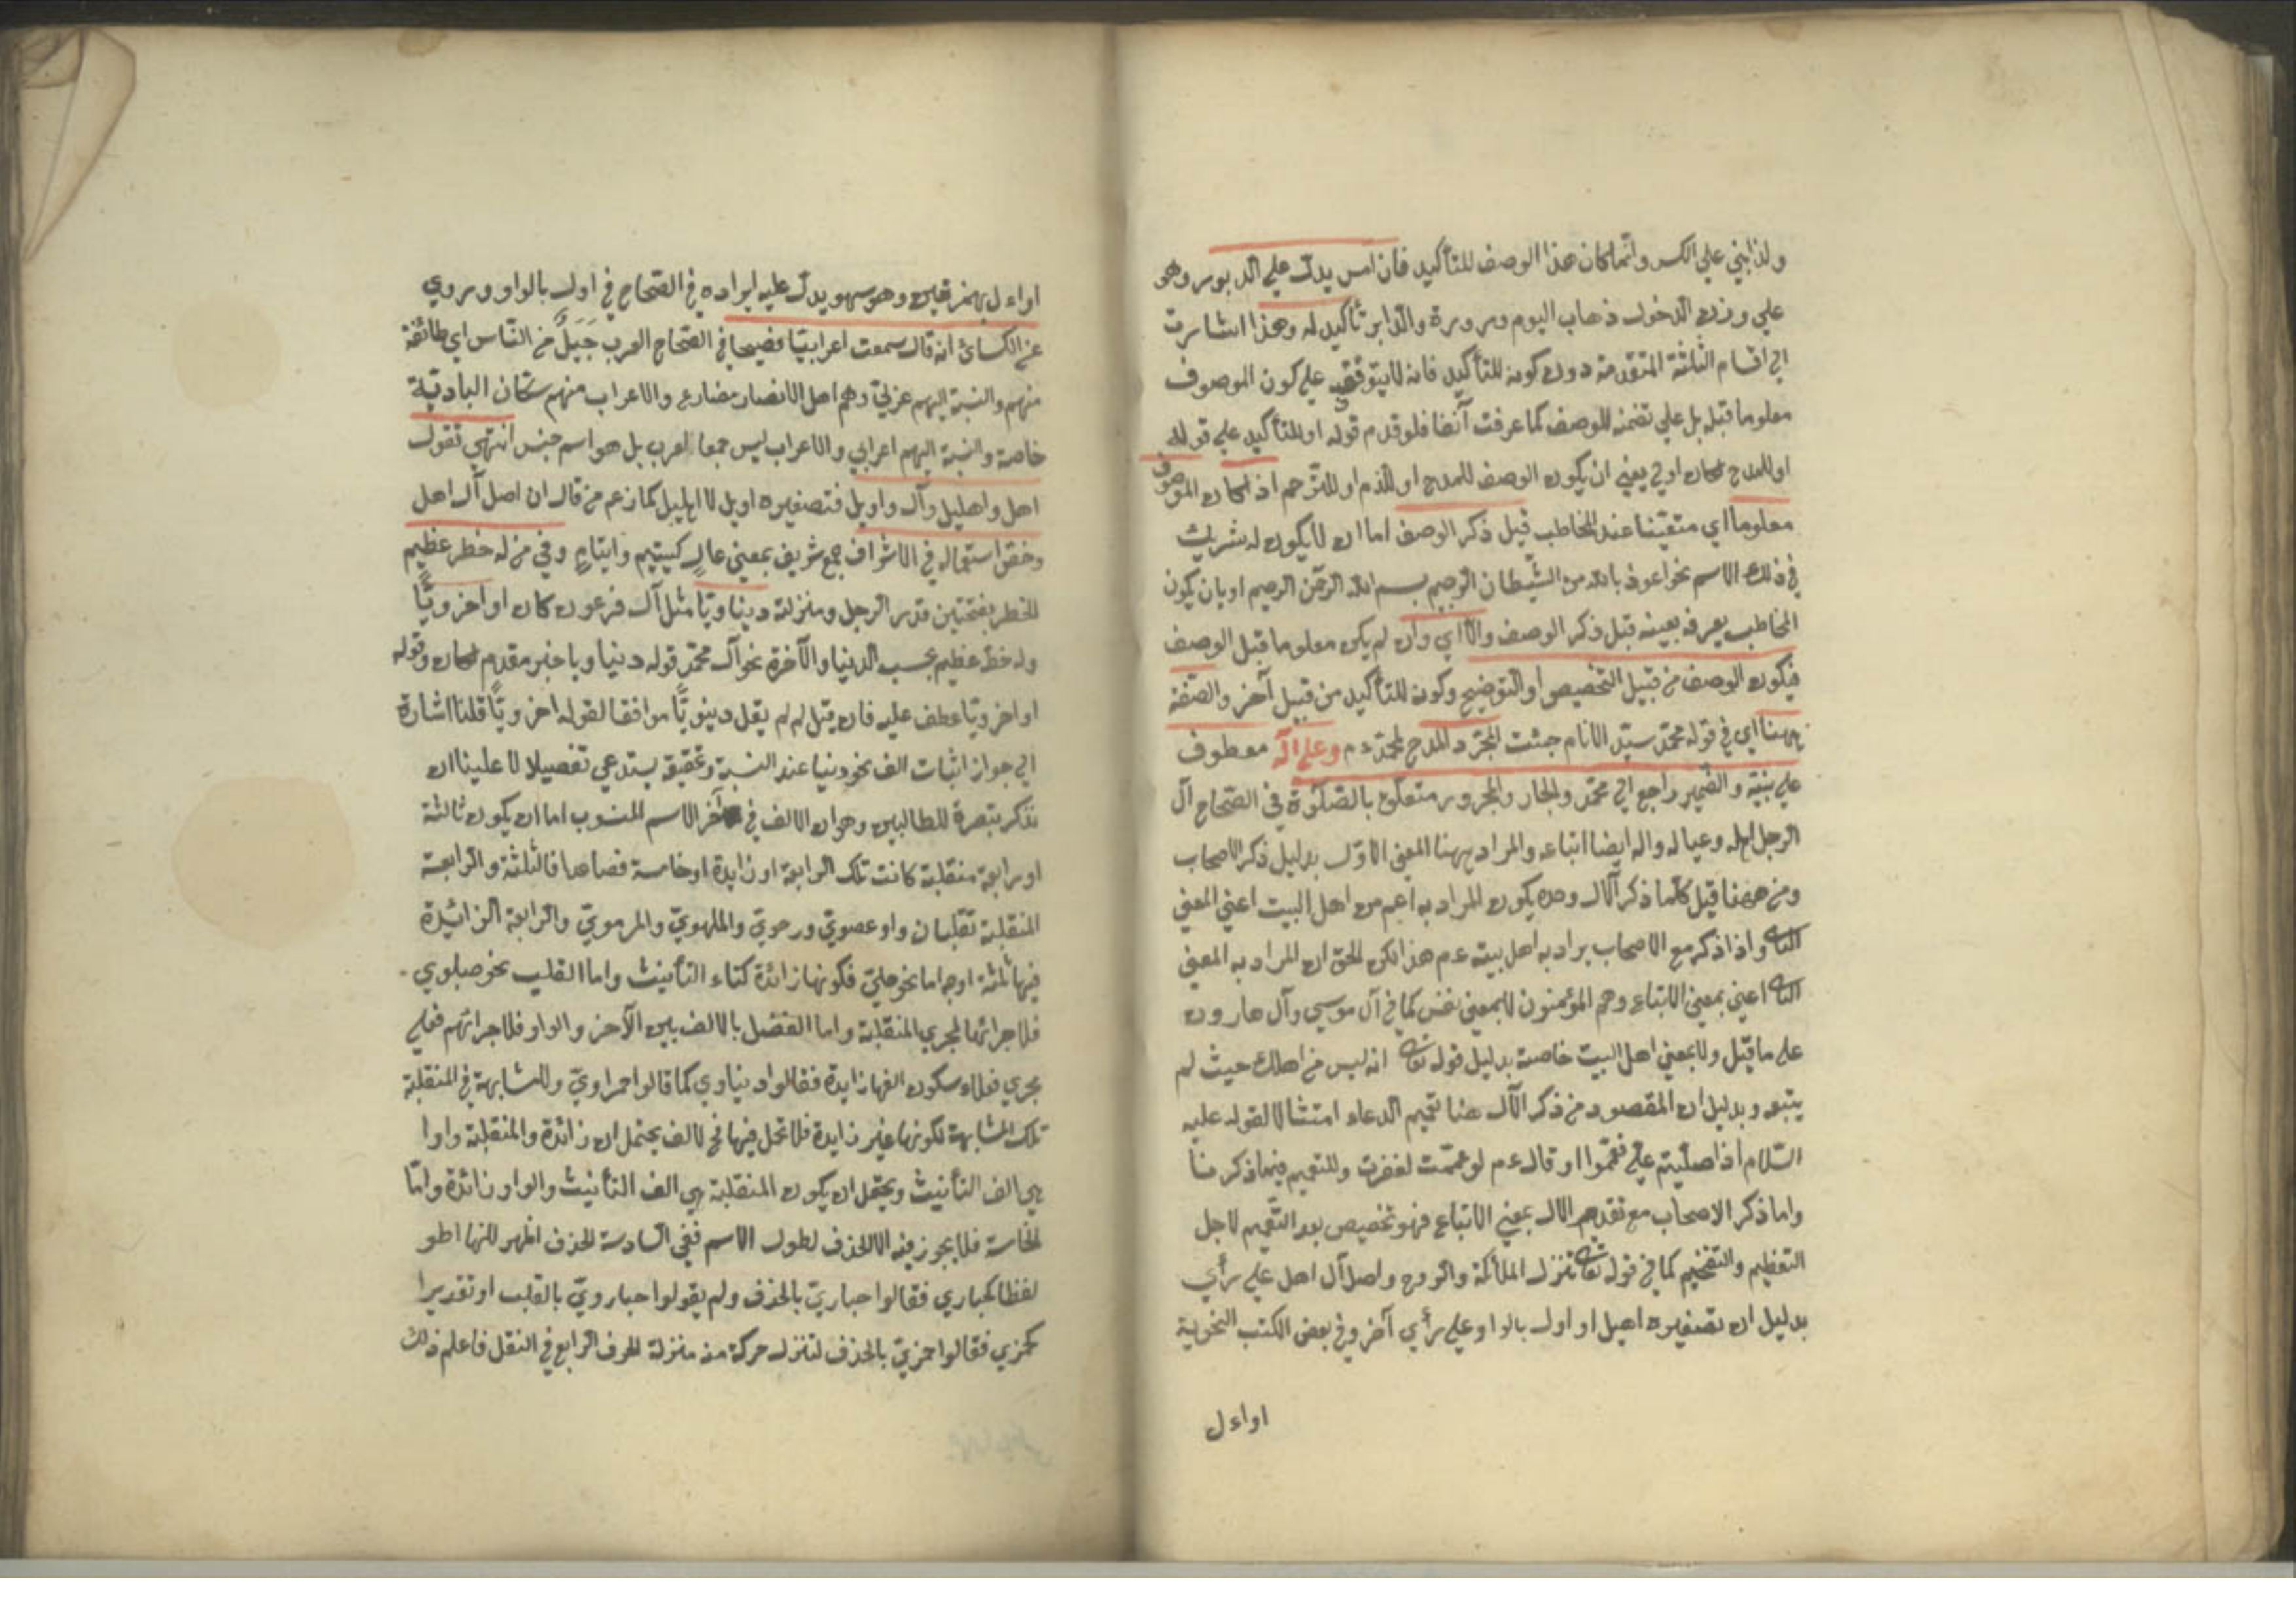 ولذا بني علي الكسر وانما كان هذا الوصف للتأكيد فان امس يدل علي الدبور وهو
علي وزن الدخول ذهاب اليوم ومروره والدابر تأكيد له وهذا اشارت
الي اقسام الثلثة المتقدمة دون كونه للتأكيد فانه لا يتوقف علي كون الموصوف
معلوما قبله بل علي تضمنه للوصف كما عرفت آنفا فلو قدم قوله او للتأكيد علي قوله
او للمدح لكان اولي يعني ان يكون الوصف للمدح او للذم او للترحم اذا كان الموصوف
معلوما اي متعينا عند المخاطب قبل ذكر الوصف اما ان لا يكون له شريك
في ذلك الاسم نحو اعوذ بالله من الشيطان الرجيم بسم الله الرحمن الرحيم او بان يكون
المخاطب يعرفه بعينه قبل ذكر الوصف والا اي وان لم يكن معلوما قبل الوصف
فيكون الوصف من قبيل التخصيص او التوضيح وكونه للتأكيد من قبيل آخر والصفة
ههنا اي في قوله محمد سيد الانام جئت لمجرد المدح لمحمد ءم وعلي آله معطوف
علي نبيه والضمير راجع الي محمد والجار والمجرور متعلق بالصلوة في الصحاح آل
الرجل اهله وعياله وآله ايضا اتباعه والمراد ههنا المعني الاول بدليل ذكر الاصحاب
ومن ههنا قيل كلما ذكر الآل وحده يكون المراد به اعم من اهل البيت اعني المعني
الثاني واذا ذكر مع الاصحاب يراد به اهل بيته ءم هذا لكن الحق ان المراد به المعني
الثاني اعني بمعني الاتباع وهم المؤمنون لا بمعني نفس كما في آل موسي وآل هارون
علي ما قيل ولا بمعني اهل البيت خاصة بدليل قوله تعالي انه ليس من اهلك حيث لم
يتبعه وبدليل ان المقصود من ذكر الآل هنا تعميم الدعاء امتثالا لقوله عليه
السلام اذا صليتم علي فعمموا او قال ءم لو عممت لغفرت وللتعميم فيما ذكر منا
واما ذكر الاصحاب مع تقديم الآل بمعني الاتباع فهو تخصيص بعد التعميم لاجل
التعظيم والتفخيم كما في قوله تعالي تنزل الملائكة والروح واصل آل اهل علي رأي
بدليل ان تصغيره اهيل او اول بالواو علي رأي آخر وفي بعض الكتب النحوية
اواءل
اواءل بهمزتين وهو سهو يدل عليه ايراده في الصحاح في اول بالواو وروي
عن الكسائي انه قال سمعت اعرابيا فصيحا في الصحاح العرب جيل من الناس اي طائفة
منهم والنسبة اليهم عربي وهم اهل الامصار والاعراب منهم سكان البادية
خاصة والنسبة اليهم اعرابي والاعراب ليس جمعا لعرب بل هو اسم جنس انتهي تقول
اهل واهليل وآل واويل فتصغيره اويل لا اهيل كما زعم من قال ان اصل آل اهل
وخص استعماله في الاشراف جمع شريف بمعني عال كيتيم وايتام وفي من له خطر عظيم
الخطر بفتحتين قدر الرجل ومنزلته دنياويا مثل آل فرعون كان او اخرويا
وله حظ عظيم بحسب الدنيا والآخرة نحو آل محمد قوله دنياويا خبر مقدم لكان وقوله
او اخرويا عطف عليه فان قيل لم لم يقل دنيويا موافقا لقوله اخرويا قلنا اشارة
الي جواز اثبات الف نحو دنيا عند النسبة وتحقيقه يستدعي تفصيلا لا علينا ان
نذكر تبصرة للطالبين وهو ان الالف في آخر الاسم المنسوب اما ان يكون ثالثة
او رابعة منقلبة كانت تلك الرابعة او زايدة او خامسة فصاعدا فالثلثة والرابعة
المنقلبة تقلبان واو عصوي ورحوي والملهوي والمرموي والرابعة الزائدة
فيها ثلثة اوجه اما نحو حبلي فكونها زائدة كتاء التأنيث واما القلب نحو حبلوي
فلاجرائها مجري المنقلبة واما الفصل بالالف بين الآخر والواو فلاجرائهم فعلي
مجري فعلاء سكون الفها زايدة فقالوا دنياوي كما قالوا حمراوي وللمشابهة في المنقلبة
تلك المشابهة لكونها غير زايدة فلا تحل فيها نح لالف يحتمل ان زائدة والمنقلبة واوا
هي الف التأنيث ويحتمل ان يكون المنقلبة هي الف التأنيث والواو زائدة واما
الخامسة فلا يجوز فيه الا الحذف لطول الاسم ففي السادسة الحذف اظهر لانها اطو
لفظا كحباري فقالوا حباري بالحذف ولم يقولوا حباروي بالقلب او تقديرا
كجمزي فقالوا جمزي بالحذف لتنزل حركة منه منزلة الحرف الرابع في الثقل فاعلم ذلك